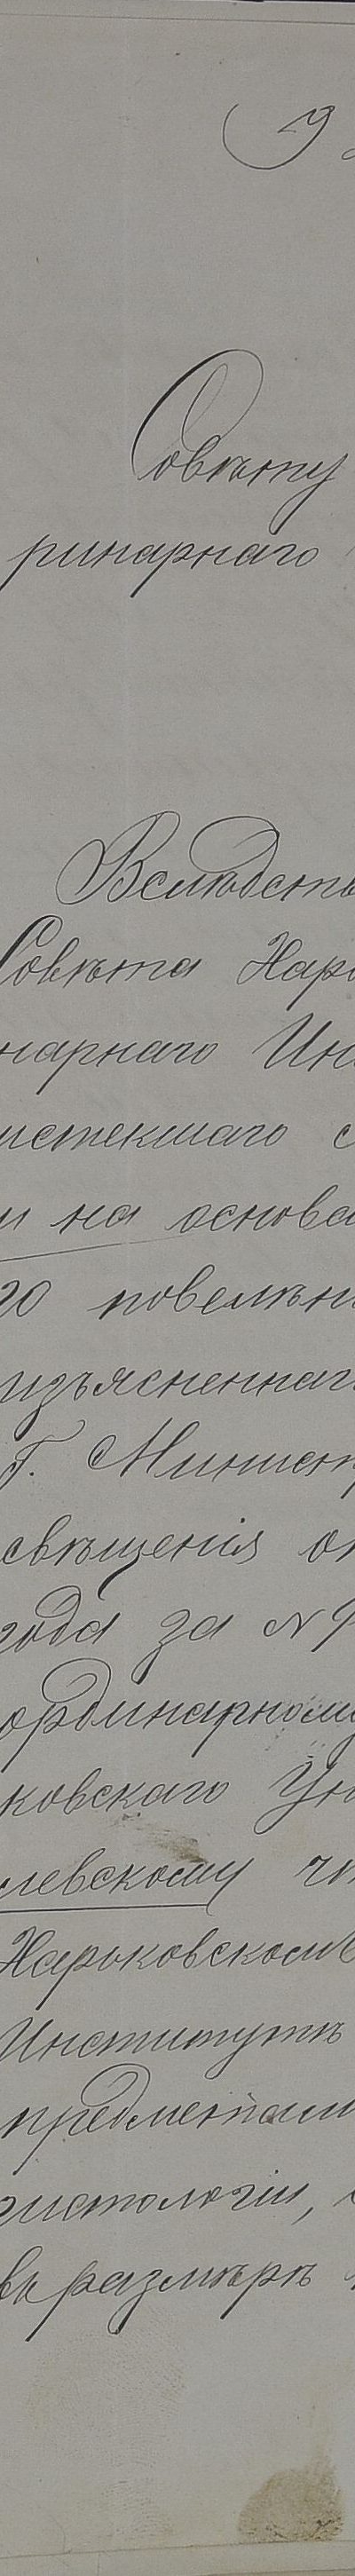 9
Совѣту
ринарнаго
Вслѣдств
Совѣта Харь
нарнаго Инс
истекшаго с
и на основа
го повелѣн
изъясненнаг
Г. Минист
свѣщенія о
года за №
ординарному
ковскаго Ун
левскому чт
Харьковскомъ
Институтѣ
предметами
гистологіи,
въ размѣрѣ